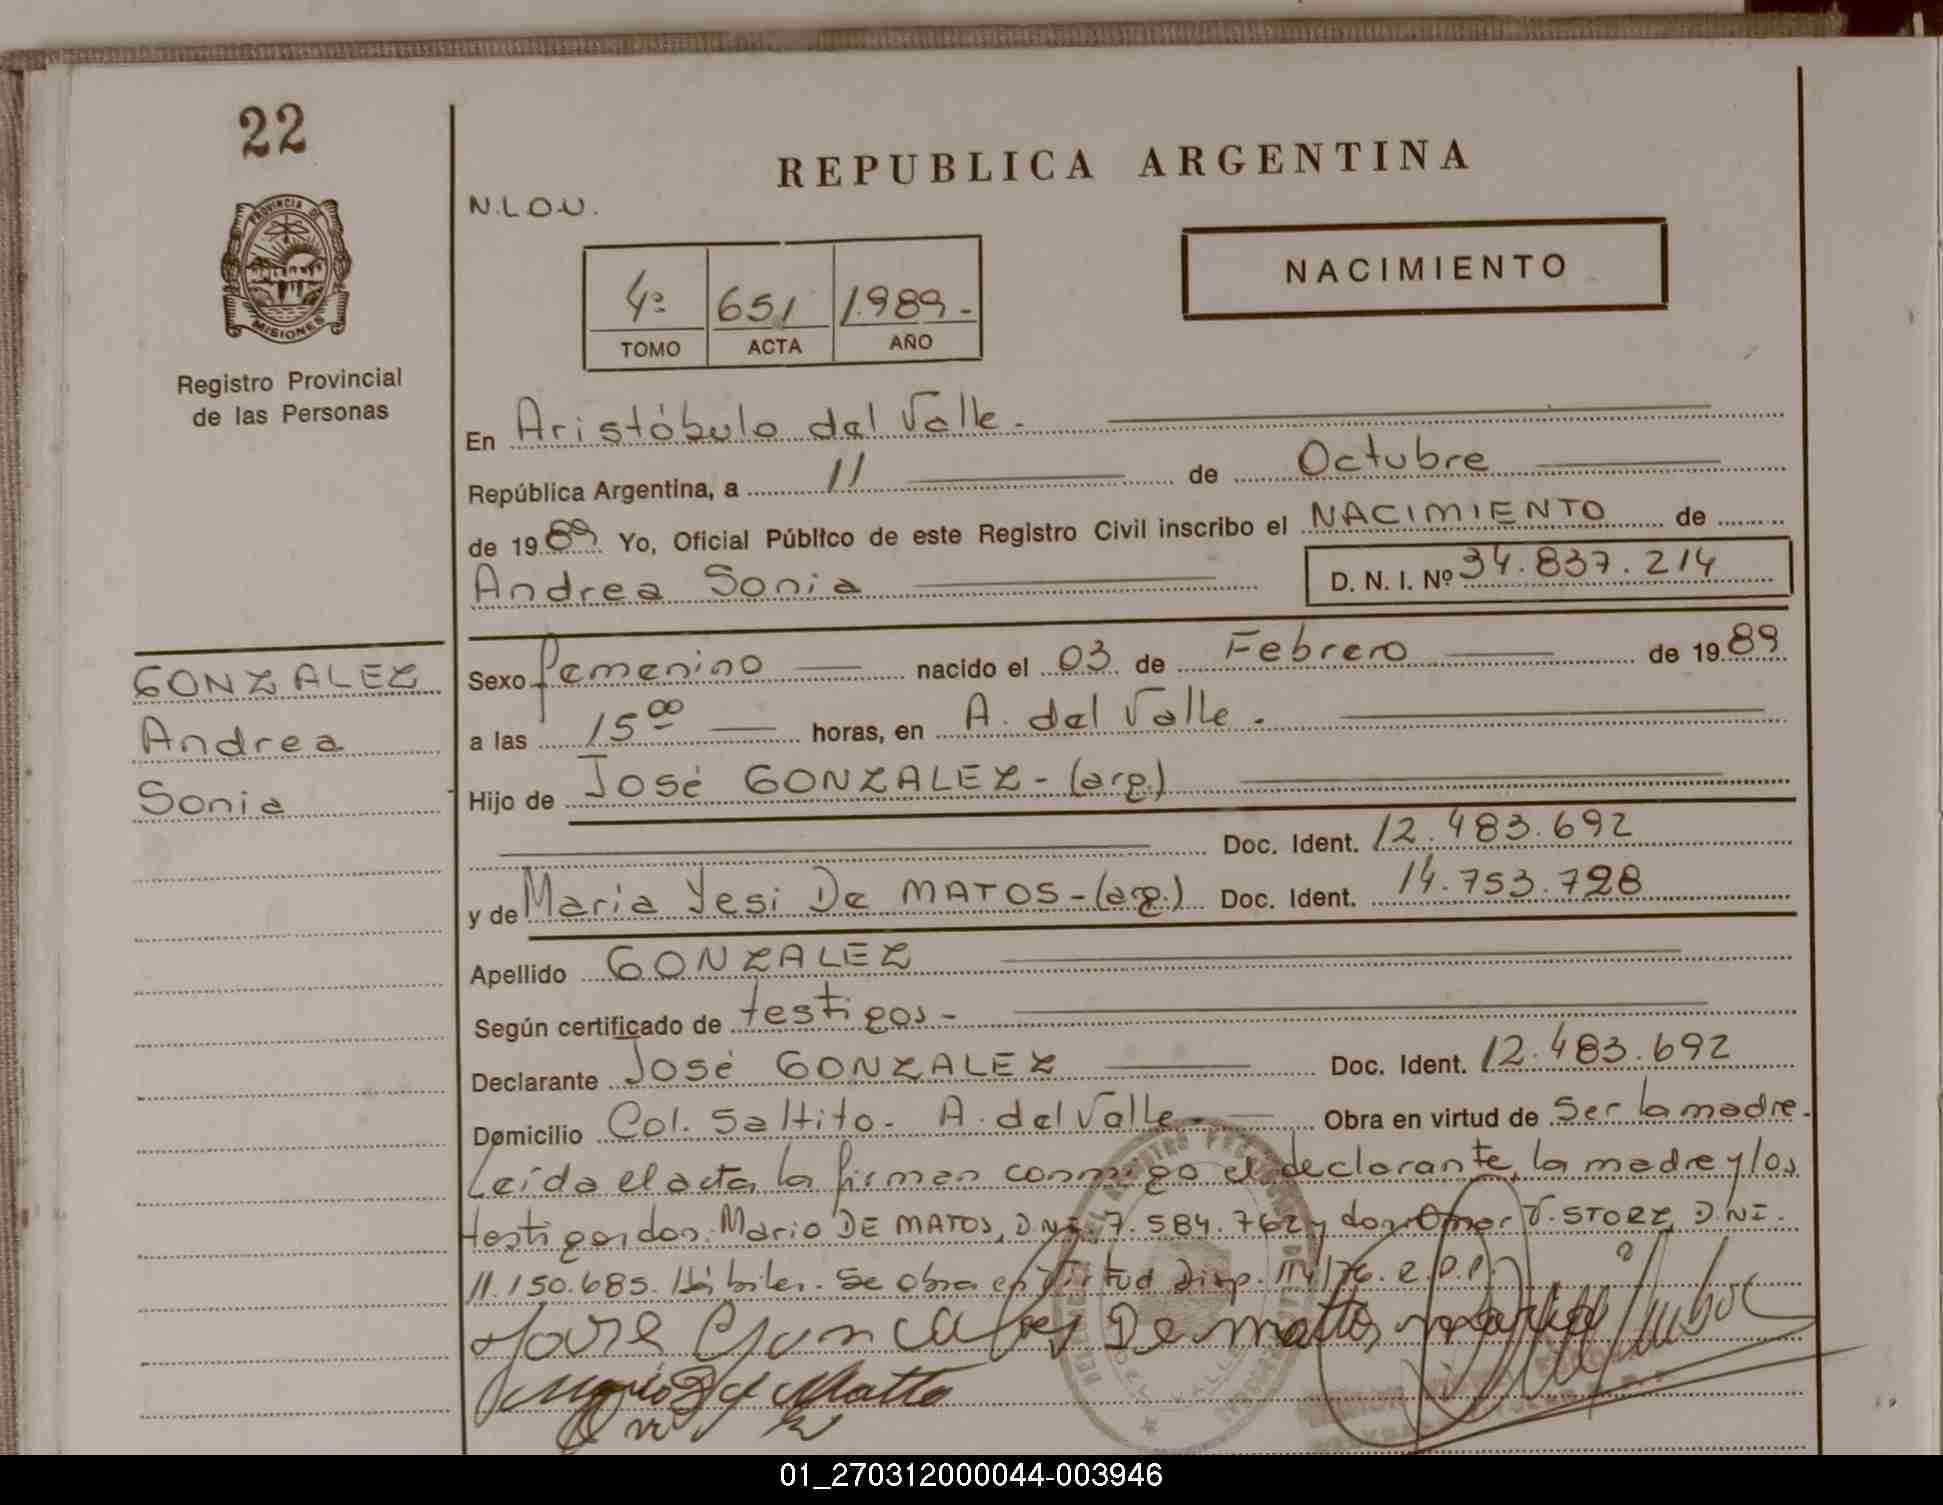 22
PROVINCIA DE
MISIONES
Registro Provincial
de las Personas
REPUBLICA ARGENTINA
N.L.O.U.
NACIMIENTO
4º 651 1.989-
TOMO ACTA AÑO
En Aristóbulo del Valle.
República Argentina, a 11 de Octubre
de 1989 Yo, Oficial Público de este Registro Civil inscribo el NACIMIENTO de
Andrea Sonia D. N. I. Nº 34.837.214
GONZALEZ
Andrea
Sonia
Sexo femenino nacido el 03 de Febrero de 1989
a las 15 00 horas, en A. del Valle.
Hijo de José GONZALEZ - (arg.)
Doc. Ident. 12.483.692
y de Maria Yesi De MATOS - (arg.) Doc. Ident. 14.753.728
Apellido GONZALEZ
Según certificado de testigos -
Declarante José GONZALEZ Doc. Ident. 12.483.692
Domicilio Col. Saltito - A. del Valle - Obra en virtud de Ser la madre.
Leída el acta, la firman conmigo el declarante, la madre y los
testigos don Mario DE MATOS, D.N.I. 7.584.762 y don Omar V. STORZ, D.NI.
11.150.685. Hábiles. Se obra en virtud Disp. 114/76. R.P.P.
De mattos
01_270312000044-003946